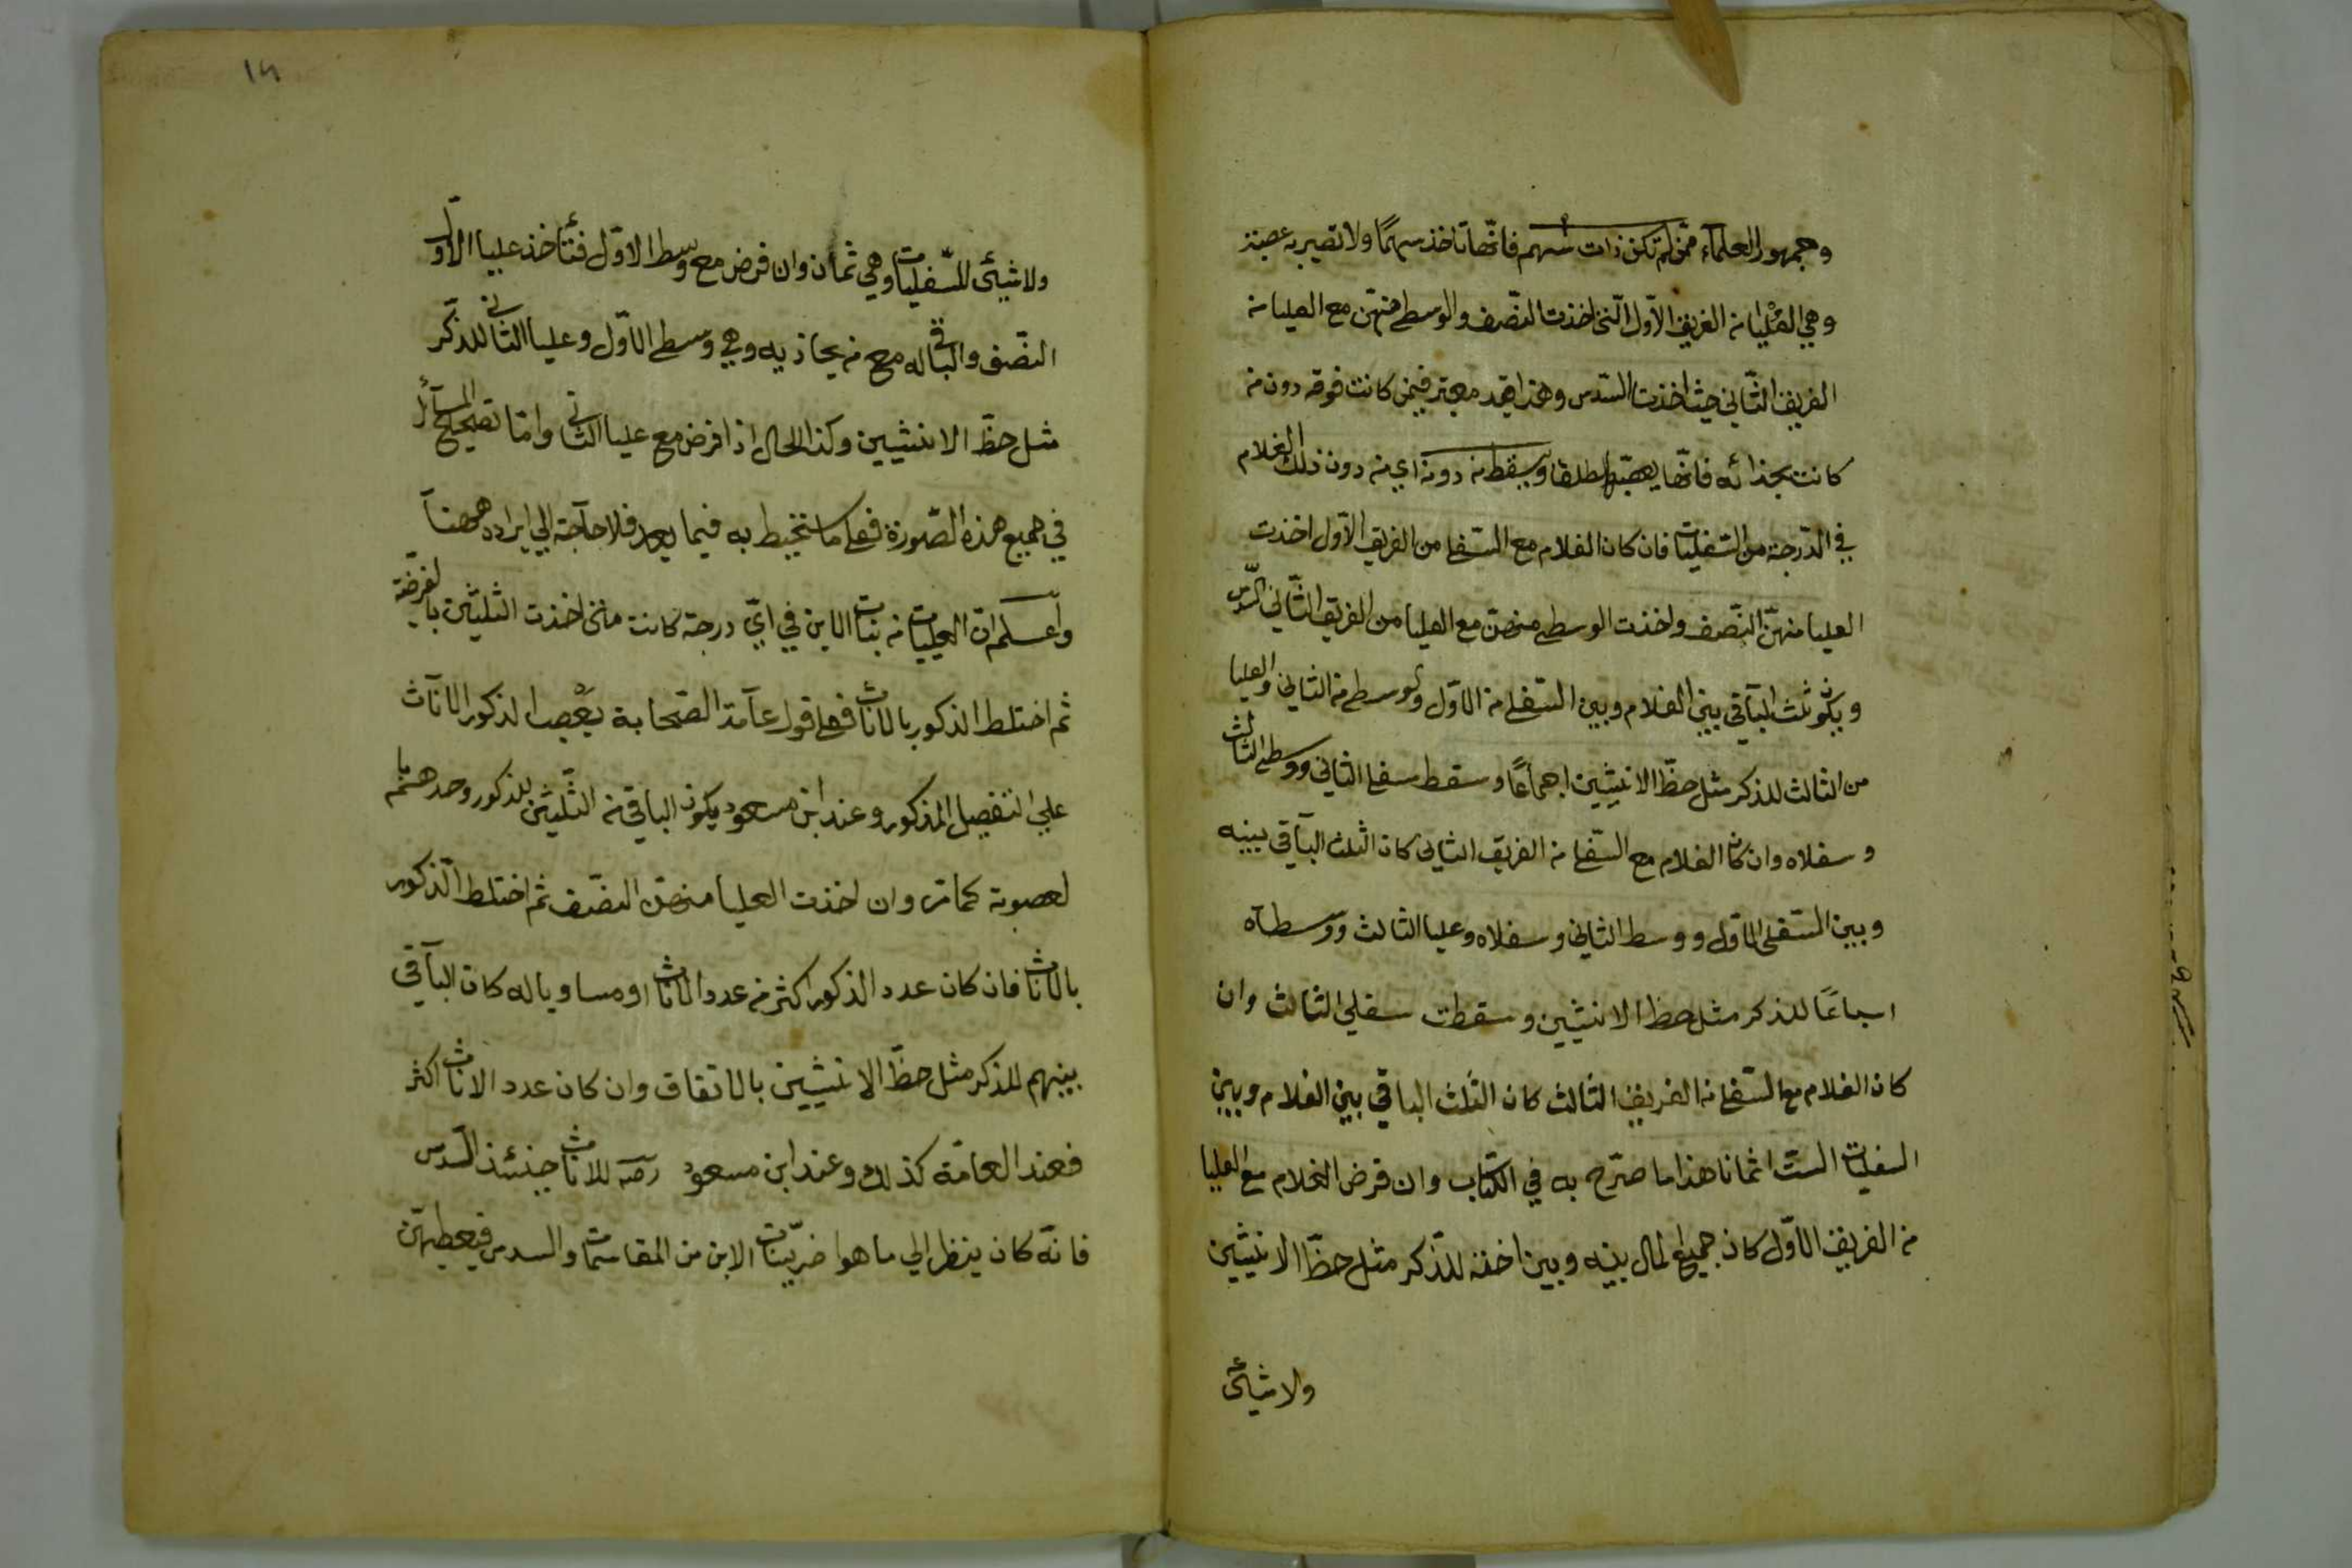 وجمهور العلماء ممن لم تكن ذات سهم فانّها تاخذ سهمًا ولا تصير به عصبة
وهي العُليا من الفريق الاوّل الّتى اخذت النصّف والوسطى منهنّ مع العليا من
الفريق الثّاني حيث اخذت السّدس وهذا قيد معتبر فيمن كانت فوقه دون من
كانت بحذائه فانّها يعصّبها مطلقا ويسقط من دونه اي من دون ذلك الغلام
في الدّرجة من السّفليات فان كان الغلام مع السّفلى من الفريق الاوّل اخذت
العليا منهنّ النصّف واخذت الوسطى منهنّ مع العليا من الفريق الثّاني السّدس
ويكون ثلث البآقي بين الغلام وبين السّفلى من الاوّل والوسطى من الثاني والعليا
من الثالث للذكر مثل حظّ الانثيين اجماعًا وسقط سفلى الثاني ووسطى الثالث
وسفلاه وان كان الغلام مع السّفلى من الفريق الثاني كان الثلث البآقي بينه
وبين السّفلى الاول ووسط الثاني وسفلاه وعليا الثالث ووسطآه
اسباعًا للذكر مثل حظ الانثيين وسقطت سفلي الثالث وان
كان الغلام مع السّفلى من الفريق الثالث كان الثّلث الباقي بين الغلام وبين
السفليات الستّ اثمانا هذا ما صرّح به في الكتاب وان فرض الغلام مع العليا
من الفريق الاوّل كان جميع المال بينه وبين اخته للذّكر مثل حظّ الانثيين
ولا شيئ
ولا شيئ للسّفليات وهي ثمان وان فرض مع وسط الاوّل فتأخذ عليا الاوّل
النصّف والباقي له مع من يحاذيه وهي وسطى الاوّل وعليا الثاني للذكّر
مثل حظّ الانثيين وكذا الحال اذا فرض مع عليا الثاني وامّا تصحيح المسآئل
في جميع هذه الصّورة فعلى ما ستحيط به فيما بعد فلا حآجة الي ايراده ههنآ
واعلم ان العليات من بنات الابن في ايّ درجة كانت متى اخذت الثلثين بالفريضة
ثم اختلط الذكور بالاناث فعلى قول عآمة الصّحابة يعْصب الذكور الاناث
علي التفصيل المذكور وعند ابن مسعود يكون الباقي من الثّلثين للذكور وحدهم با
لعصوبة كما مر وان اخذت العليا منهن النصّف ثم اختلط الذّكور
بالاناث فان كان عدد الذكور اكثر من عدد الاناث او مساويا له كان البآقي
بينهم للذكر مثل حظّ الانثيين بالاتفاق وان كان عدد الاناث اكثر
فعند العامّة كذلك وعند ابن مسعود رضه للاناث حينئذ السّدس
فانّه كان ينظر الي ما هوا ضر ببنات الابن من المقاسمات والسدس فيعطيهنّ